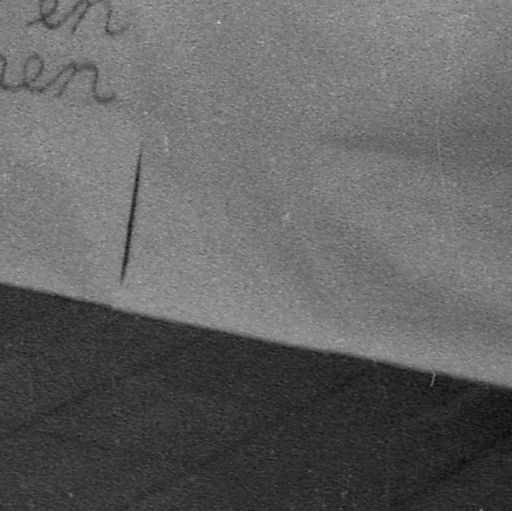 en
ren